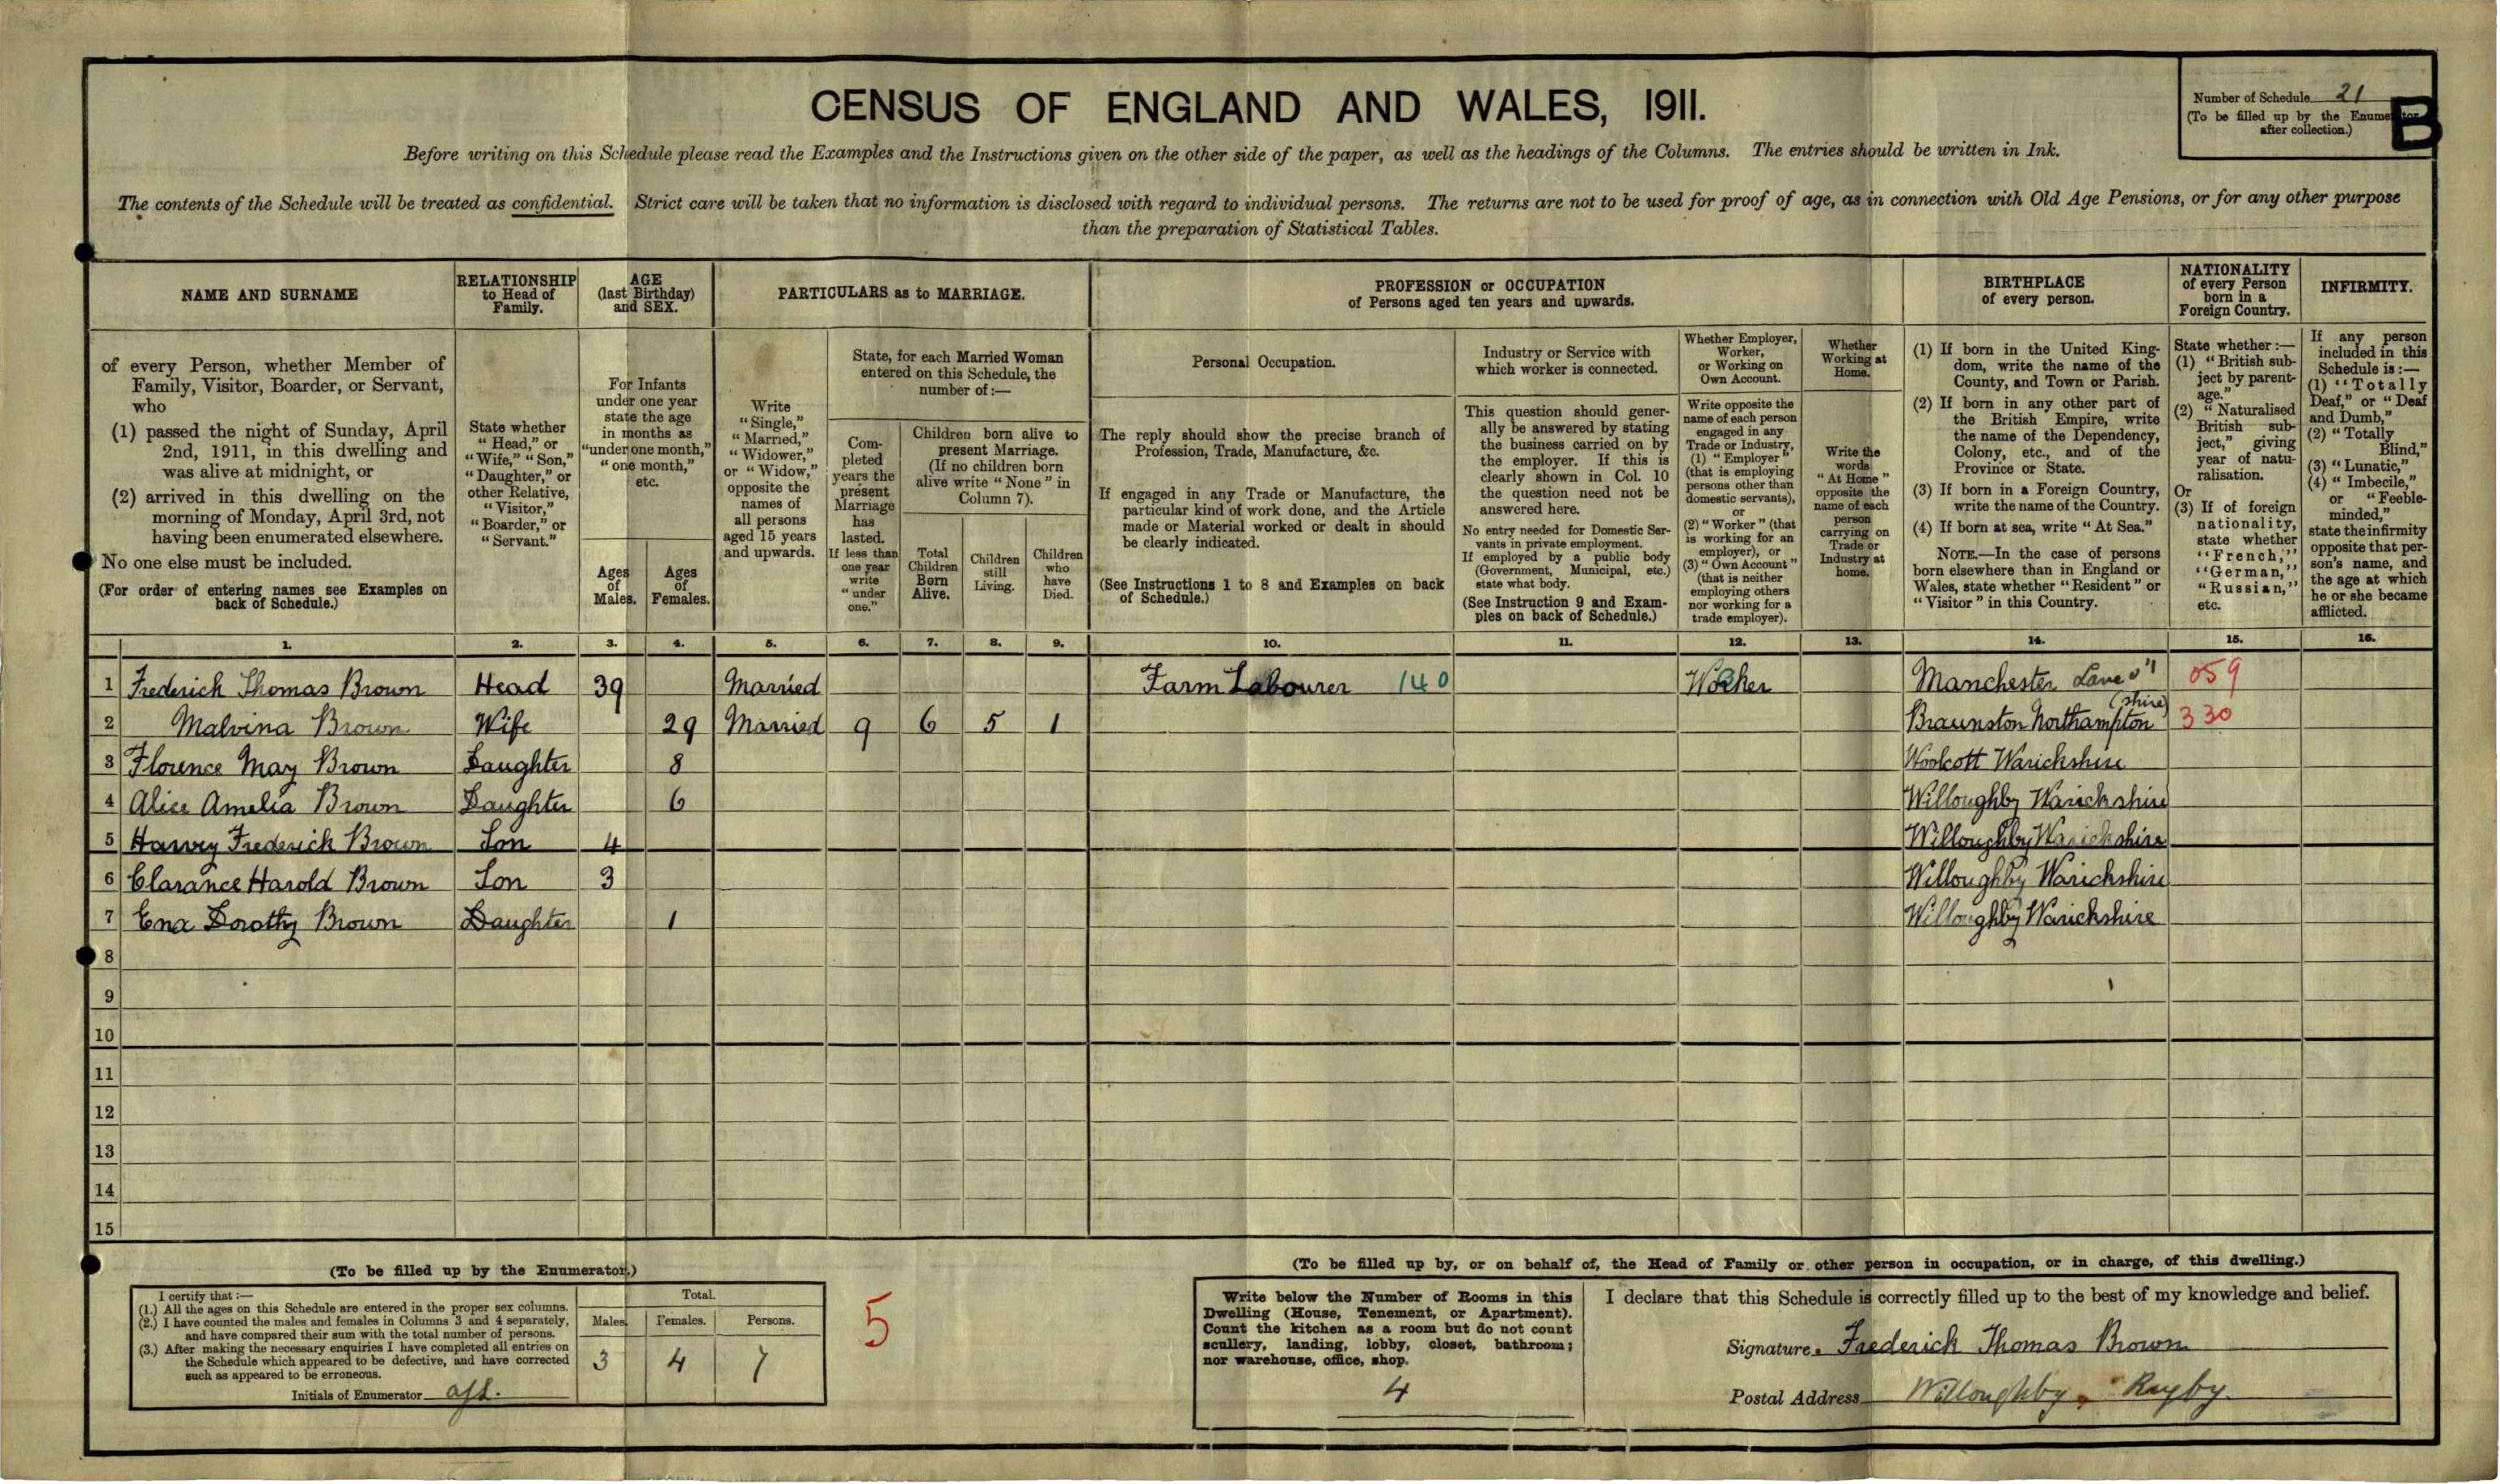 CENSUS OF ENGLAND AND WALES, 1911.
Number of Schedule 21
(To be filled up by the Enumerator after collection.)
B
Before writing on this Schedule please read the Examples and the Instructions given on the other side of the paper, as well as the headings of the Columns. The entries should be written in Ink.
The contents of the Schedule will be treated as confidential. Strict care will be taken that no information is disclosed with regard to individual persons. The returns are not to be used for proof of age, as in connection with Old Age Pensions, or for any other purpose
than the preparation of Statistical Tables.
NAME AND SURNAME
of every Person, whether Member of
Family, Visitor, Boarder, or Servant,
who
(1) passed the night of Sunday, April
2nd, 1911, in this dwelling and
was alive at midnight, or
(2) arrived in this dwelling on the
morning of Monday, April 3rd, not
having been enumerated elsewhere.
No one else must be included.
(For order of entering names see Examples on
back of Schedule.)
RELATIONSHIP
to Head of
Family.
State whether
"Head," or
"Wife," "Son,"
"Daughter," or
other Relative,
"Visitor,"
"Boarder," or
"Servant."
AGE
(last Birthday)
and SEX.
For Infants
under one year
state the age
in months as
"under one month,"
"one month,"
etc.
Ages
of
Males.
Ages
of
Females.
PARTICULARS as to MARRIAGE.
Write
"Single,"
"Married,"
"Widower,"
or "Widow,"
opposite the
names of
all persons
aged 15 years
and upwards.
State, for each Married Woman
entered on this Schedule, the
number of:—
Com-
pleted
years the
present
Marriage
has
lasted.
If less than
one year
write
"under
one."
Children born alive to
present Marriage.
(If no children born
alive write "None" in
Column 7).
Total
Children
Born
Alive.
Children
still
Living.
Children
who
have
Died.
PROFESSION or OCCUPATION
of Persons aged ten years and upwards.
Personal Occupation.
The reply should show the precise branch of
Profession, Trade, Manufacture, &c.
If engaged in any Trade or Manufacture, the
particular kind of work done, and the Article
made or Material worked or dealt in should
be clearly indicated.
(See Instructions 1 to 8 and Examples on back
of Schedule.)
Industry or Service with
which worker is connected.
This question should gener-
ally be answered by stating
the business carried on by
the employer. If this is
clearly shown in Col. 10
the question need not be
answered here.
No entry needed for Domestic Ser-
vants in private employment.
If employed by a public body
(Government, Municipal, etc.)
state what body.
(See Instruction 9 and Exam-
ples on back of Schedule.)
Whether Employer,
Worker,
or Working on
Own Account.
Write opposite the
name of each person
engaged in any
Trade or Industry,
(1) "Employer"
(that is employing
persons other than
domestic servants),
or
(2) "Worker" (that
is working for an
employer), or
(3) "Own Account"
(that is neither
employing others
nor working for a
trade employer).
Whether
Working at
Home.
Write the
words
"At Home"
opposite the
name of each
person
carrying on
Trade or
Industry at
home.
BIRTHPLACE
of every person.
(1) If born in the United King-
dom, write the name of the
County, and Town or Parish.
(2) If born in any other part of
the British Empire, write
the name of the Dependency,
Colony, etc., and of the
Province or State.
(3) If born in a Foreign Country,
write the name of the Country.
(4) If born at sea, write "At Sea."
NOTE.—In the case of persons
born elsewhere than in England or
Wales, state whether "Resident" or
"Visitor" in this Country.
NATIONALITY
of every Person
born in a
Foreign Country.
State whether:—
(1) "British sub-
ject by parent-
age."
(2) "Naturalised
British sub-
ject," giving
year of natu-
ralisation.
Or
(3) If of foreign
nationality,
state whether
"French,"
"German,"
"Russian,"
etc.
INFIRMITY.
If any person
included in this
Schedule is:—
(1) "Totally
Deaf," or "Deaf
and Dumb,"
(2) "Totally
Blind,"
(3) "Lunatic,"
(4) "Imbecile,"
or "Feeble-
minded,"
state the infirmity
opposite that per-
son's name, and
the age at which
he or she became
afflicted.
1. 2. 3. 4. 5. 6. 7. 8. 9. 10. 11. 12. 13. 14. 15. 16.
1 Frederick Thomas Brown Head 39 Married Farm Labourer 140 Worker Manchester 059
2 Malvina Brown Wife 29 Married 9 6 5 1 Braunston Northampton (shire) 330
3 Florence May Brown Daughter 8 Woolcott Warickshire
4 Alice Amelia Brown Daughter 6 Willoughby Warickshire
5 Harvey Frederick Brown Son 4 Willoughby Warickshire
6 Clarance Harold Brown Son 3 Willoughby Warickshire
7 Ena Dorothy Brown Daughter 1 Willoughby Warickshire
8
9
10
11
12
13
14
15
(To be filled up by the Enumerator.)
I certify that:—
(1.) All the ages on this Schedule are entered in the proper sex columns.
(2.) I have counted the males and females in Columns 3 and 4 separately,
and have compared their sum with the total number of persons.
(3.) After making the necessary enquiries I have completed all entries on
the Schedule which appeared to be defective, and have corrected
such as appeared to be erroneous.
Initials of Enumerator
Total.
Males. Females. Persons.
3 4 7
5
(To be filled up by, or on behalf of, the Head of Family or other person in occupation, or in charge, of this dwelling.)
Write below the Number of Rooms in this
Dwelling (House, Tenement, or Apartment).
Count the kitchen as a room but do not count
scullery, landing, lobby, closet, bathroom;
nor warehouse, office, shop.
4
I declare that this Schedule is correctly filled up to the best of my knowledge and belief.
Signature Frederick Thomas Brown
Postal Address Willoughby, Rugby.